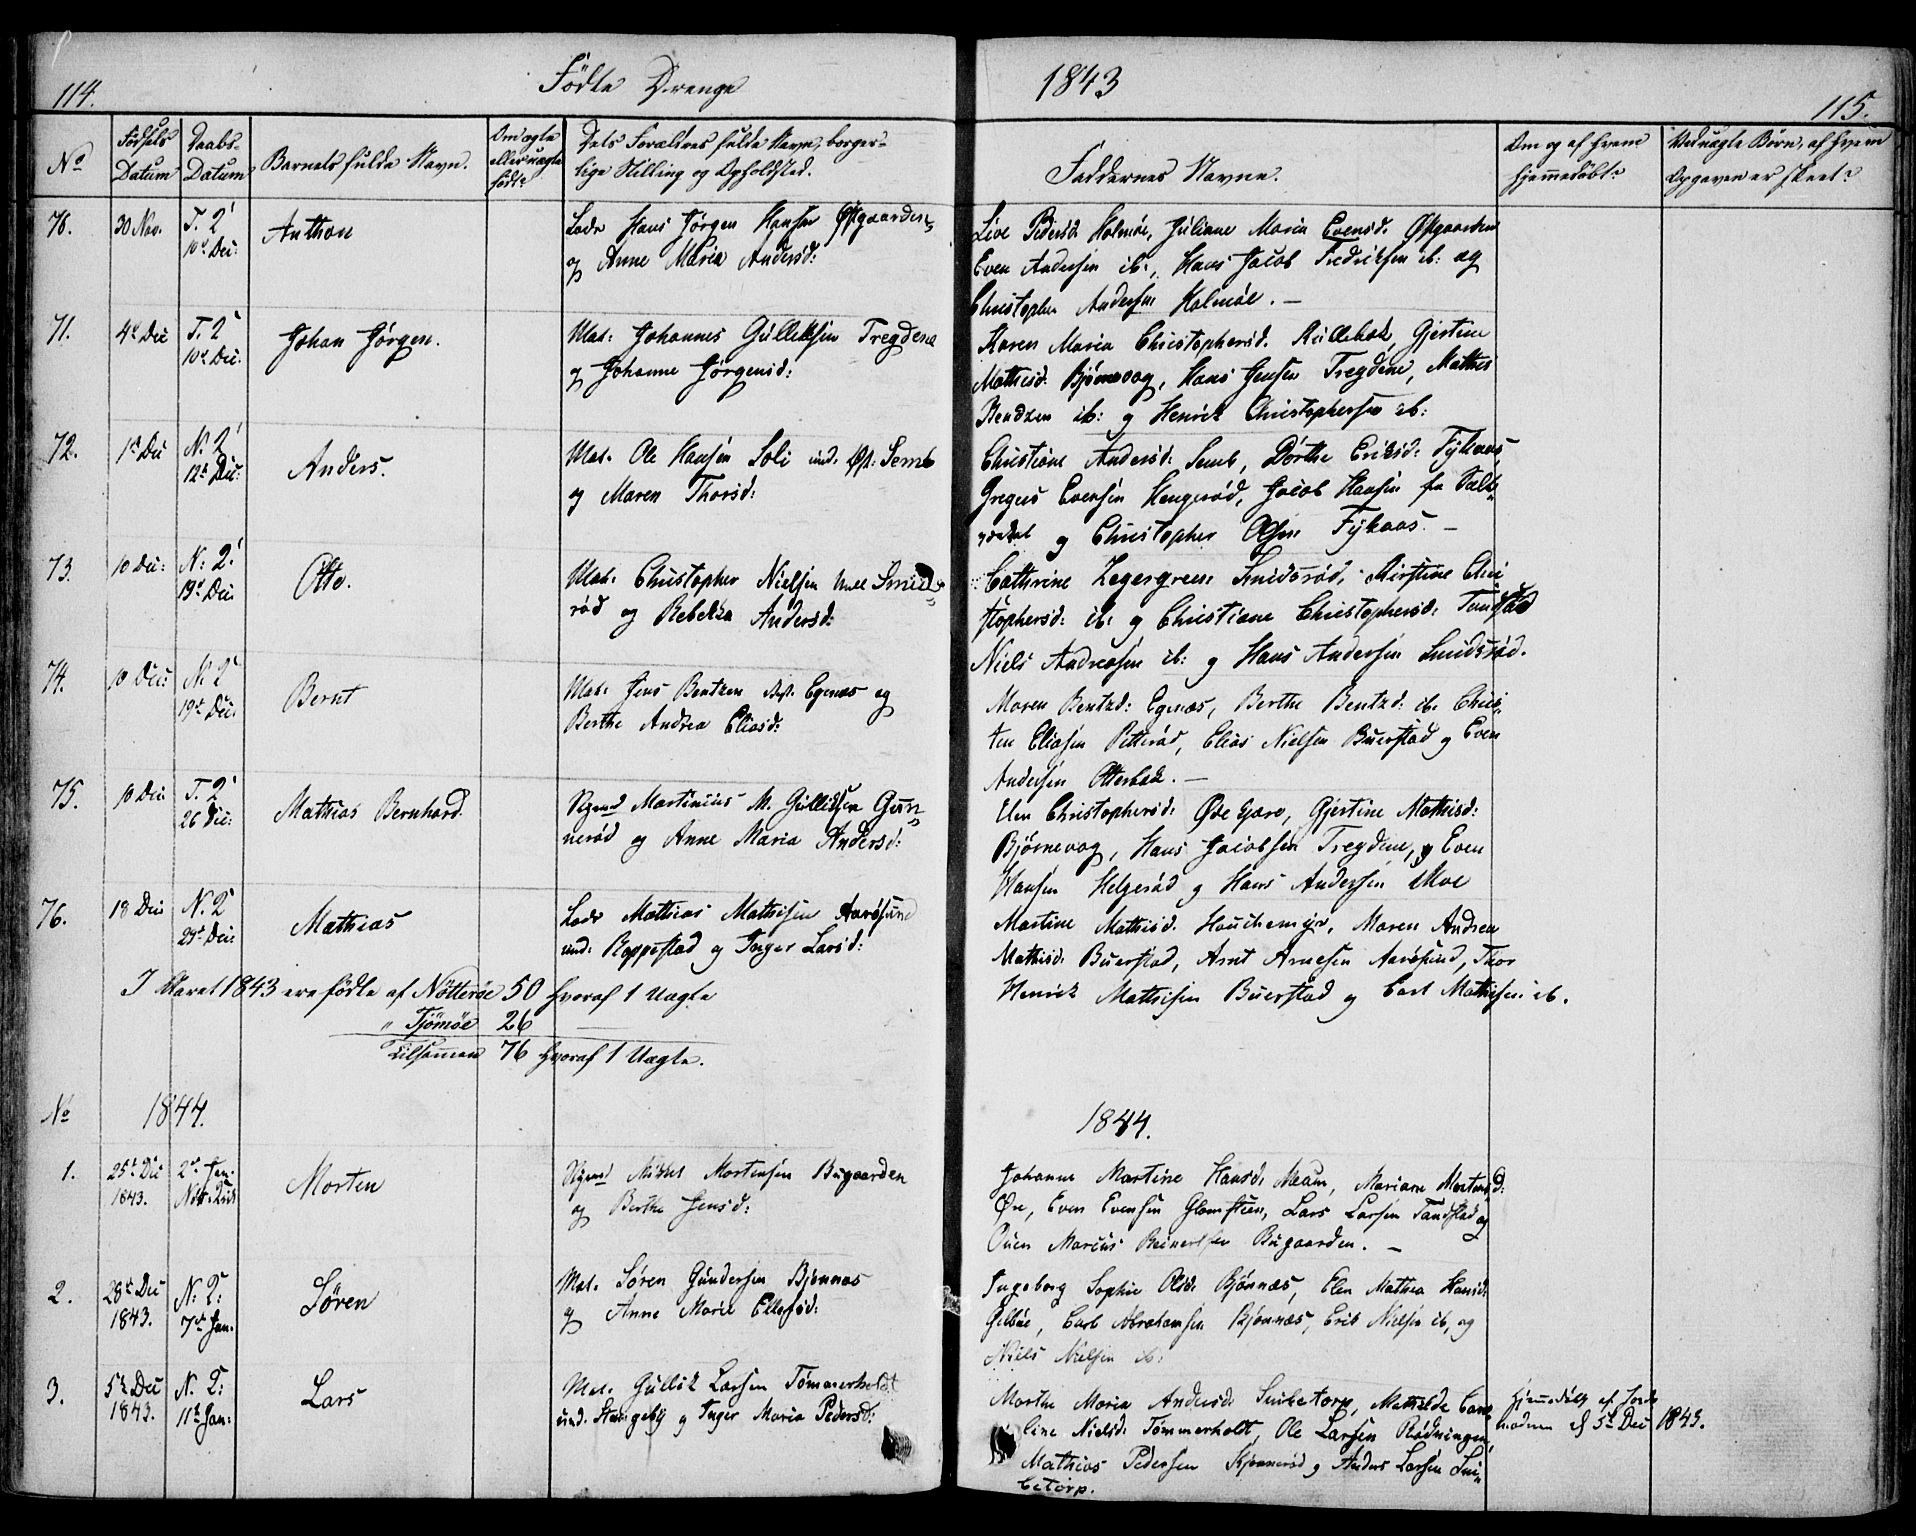 114.
Fødte Drenge
1843
115.
No
Fødsels Datum
Daabs-Datum
Barnets fulde Navn.
Om ægte eller uægte født?
Dets Forældres fulde Navn, borger-
lige Stilling og Opholdsted.
Faddernes Navne.
Om og af hvem hjemmedøbt?
Ved uægte Børn, af hvem
Opgaven er skeet?
70. 30 Nov. T. 2' Anthon Lods Hans Jørgen Hansen Østgaarden
10d Dec: og Anne Maria Andersd:
Live Pedersd. Holmøe, Juliane Maria Evensd. Østgaarden
Even Andersen ib:, Hans Jacob Fredriksen ib: og
Christopher Andersen Holmøe. —
71. 4d Dec T. 2' Johan Jørgen. Mat: Johannes Gulliksen Tregdene
10d Dec: og Johanne Jørgensd:
Karen Maria Christophersd. Rullebak, Gjertine
Mathisd. Bjørnevaag, Hans Jensen Tregdene, Mathis
Bendzen ib: og Henrik Christophersen ib:
72. 1st Dec N. 2' Anders. Mat. Ole Hansen Soli und. Øst: Semb
12t Dec: og Maren Thorsd:
Christiane Andersd: Semb, Dorthe Eriksd: Fykaas,
Gregers Evensen Hengerød, Jacob Hansen fra Valle
værket og Christopher Olsen Fykaas. —
73. 10 Dec: N: 2' Otto. Mat. Christopher Nielsen Smids
19d Dec: rød og Rebekka Andersd:
Cathrine Zegergreen Smidsrød, Kirstine Chri
stophersd: ib: og Christiane Christophersd: Tandstad
Niels Andreasen ib: og Hans Andersen Smidsrød.
74. 10 Dec: N. 2' Bernt Mat. Jens Bentzen Egenæs og
19d Dec: Berthe Andrea Eliasd:
Maren Bentzd: Egenæs, Berthe Bentzd: ib. Chris
ten Eliasen Pitterød, Elias Nielsen Buerstad og Even
Andersen Otterbek. —
75. 10 Dec T. 2' Mathias Bernhard. Ugmd Martinius M. Gulliksen Gun
26 Dec: nerød og Anne Maria Andersd:
Elen Christophersd: Øde Gare, Gjertine Mathisd:
Bjørnevag, Hans Jacobsen Tregdene, og Even
Hansen Helgerød og Hans Andersen Moe
76. 18 Dec N. 2' Mathias Lods Mathias Mathisen Aarøsund
29d Dec: und: Roppestad og Inger Larsd:
Martine Mathisd. Houchemyr, Maren Andrea
Mathisd: Buerstad, Arnt Arnesen Aarøsund, Thor
Henrik Mathisen Buerstad og Carl Mathisen ib.
I Aaret 1843 ere fødte af Nötteröe 50 hvoraf 1 Uægte
" Tjömöe 26
Tilsamen 76 hvoraf 1 Uægte.
No 1844.
1844.
1. 25d Dec 2d Jan. Morten Ugmd Mikkel Mortensen Bugaarden
1843. og Berthe Jensd:
Johanne Martine Hansd. Meum, Mariane Mortensd:
Øre, Even Evensen Glomsteen, Lars Larsen Tandstad og
Ouen Marcus Reinertsen Bugaarden. —
2. 28d Dec N: 2' Søren Mat. Søren Gundersen Bjønnæs
1843. 7d Jan. og Anne Marie Ellefsd:
Ingeborg Sophie Olsd: Bjønnæs, Elen Mathea Hansd:
Gilbøe, Carl Abrahamsen Bjønnæs, Erik Nielsen ib, og
Niels Nielsen ib:
3. 5t Dec N. 2: Lars Mat. Gullik Larsen Tømmerholdt
1843. 11t Jan: und. Stangeby og Inger Maria Pedersd:
Marthe Maria Andersd. Snibetorp, Mathilde Caro
line Nielsd: Tømmerholdt, Ole Larsen Rødningen,
Mathias Pedersen Kjønnerød og Anders Larsen Sni
betorp.
hjemmedøbt af Jorde
moderen d 5t Dec 1843.